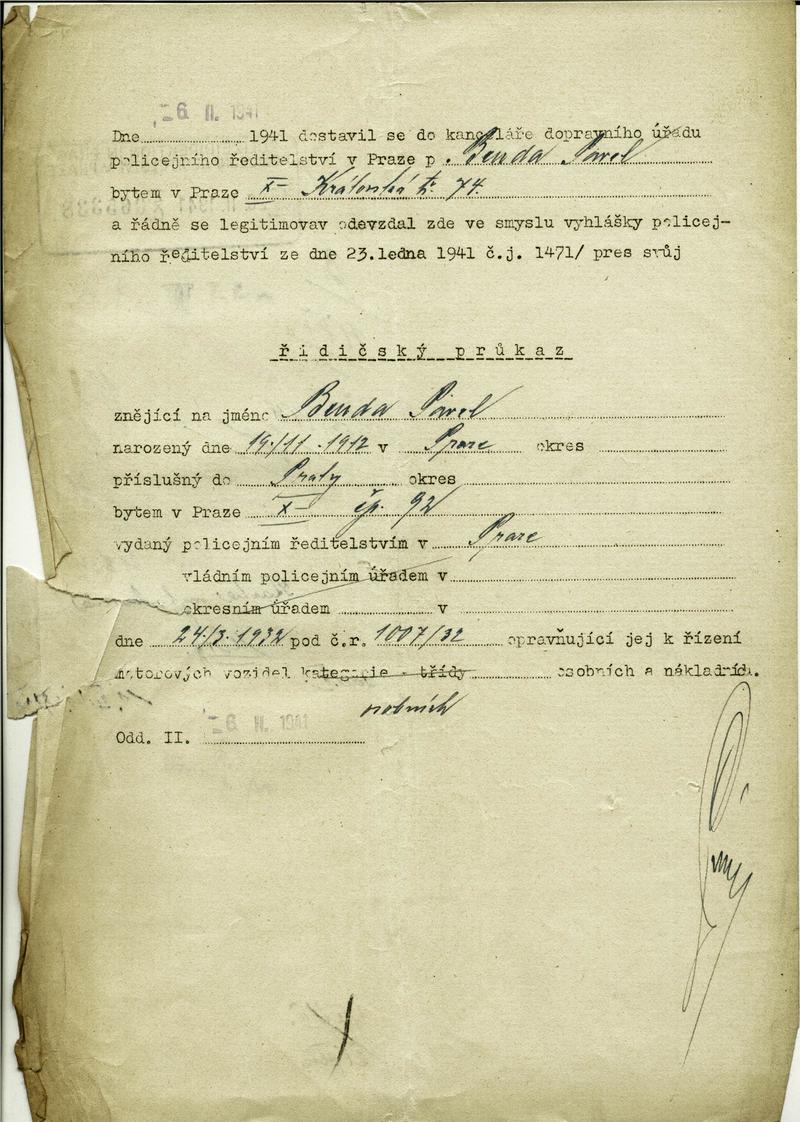 -6. II. 1941
Dne 1941 dostavil se do kanceláře dopravního úřadu
policejního ředitelství v Praze p. Benda Pavel
bytem v Praze X- Královská tř. 74.
a řádně se legitimovav odevzdal zde ve smyslu vyhlášky policej-
ního ředitelství ze dne 23.ledna 1941 č.j. 1471/ pres svůj
řidičský průkaz
znějící na jméno Benda Pavel
narozený dne 19./11.1912 v Praze okres
příslušný do Prahy okres
bytem v Praze X- čp. 92
vydaný policejním ředitelstvím v Praze
vládním policejním úřadem v
okresním úřadem v
dne 24./3.1932 pod č.r. 1007/32 opravňující jej k řízení
motorových vozidel kategorie - třídy osobních a nákladních.
osobních
Odd. II. -6. II. 1941